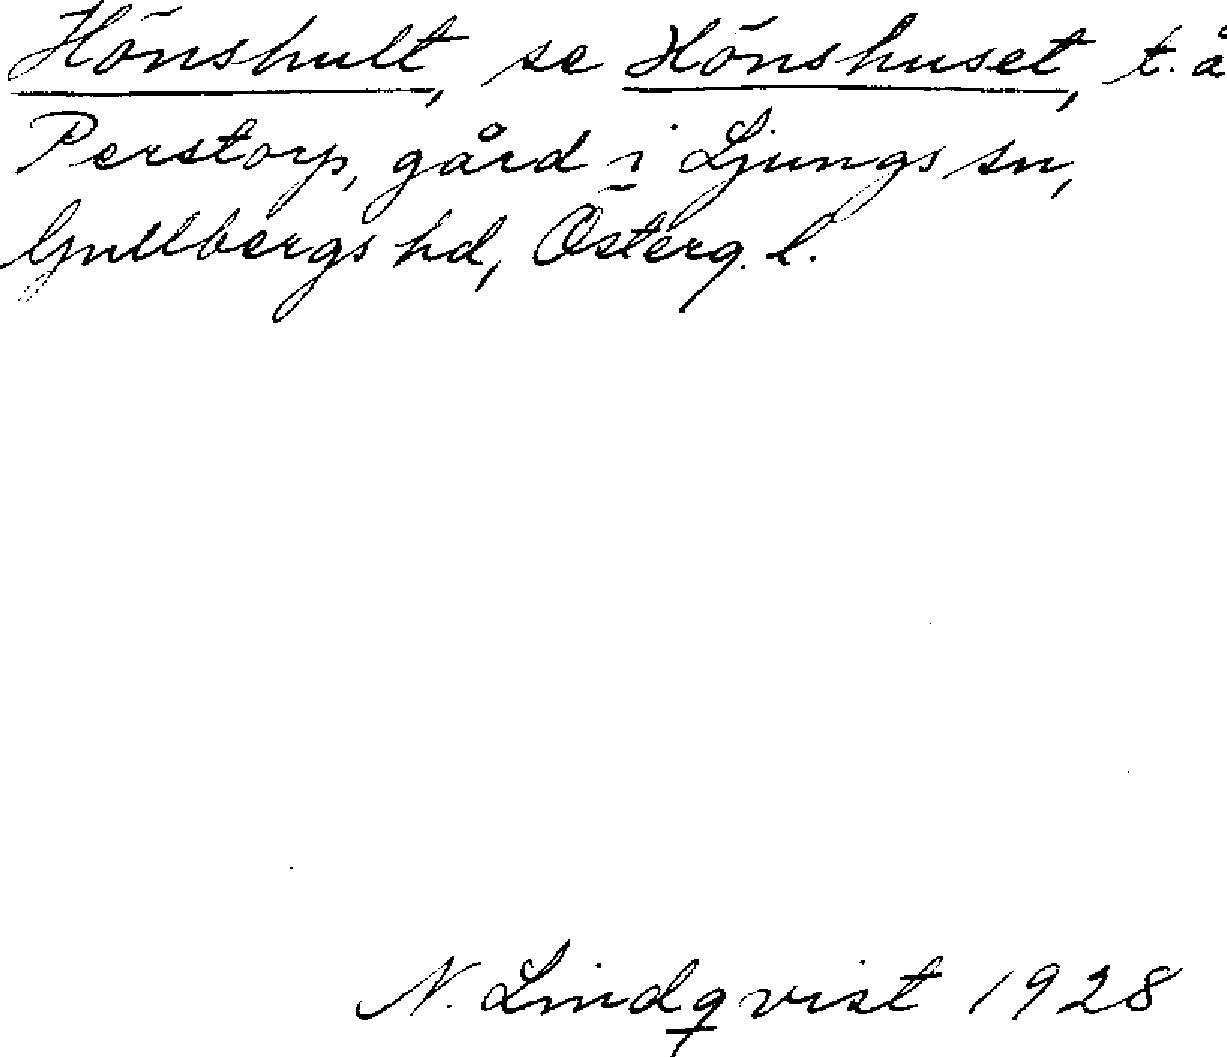 Hönshult, se Hönshuset, t. å
Perstorp, gård i Ljungs sn,
Gullbergs hd, Österg. l.
N. Lindqvist 1928